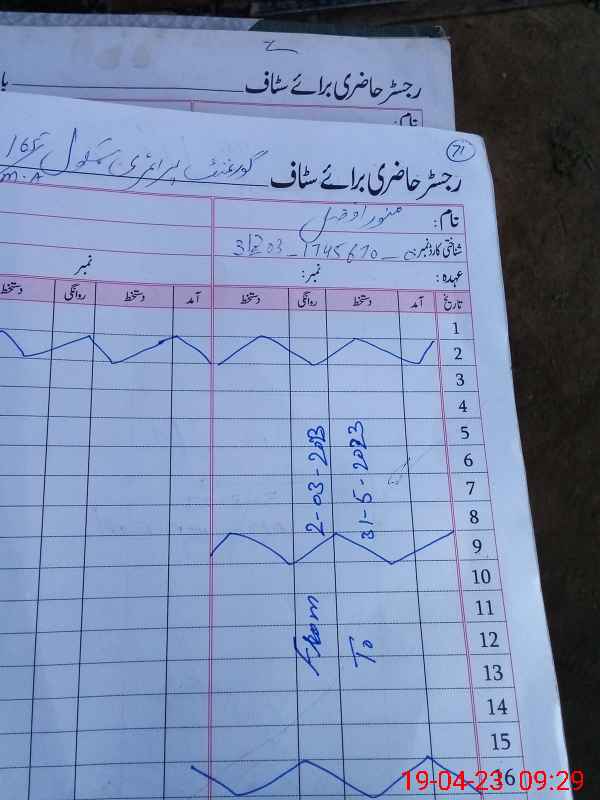 رجسٹر حاضری برائے سٹاف
نام:
71
رجسٹر حاضری برائے سٹاف گورنمنٹ پرائمری سکول
نام: منور افضل
شناختی کارڈ نمبر:
عہدہ: نمبر: نمبر
تاریخ آمد دستخط روانگی دستخط آمد دستخط روانگی دستخط
1
2
3
4
5
6
7
8
9
10
11
12
13
14
15
16
From 2-03-2023
To 31-5-2023
19-04-23 09:29